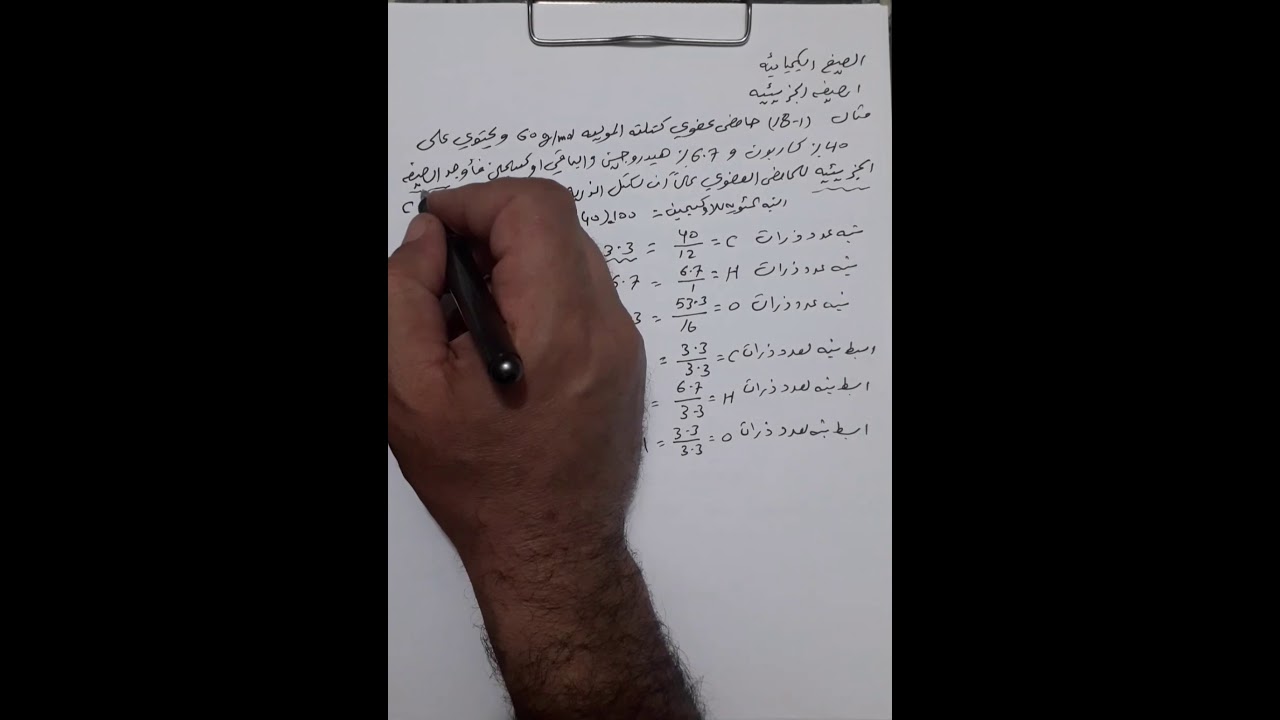 الصيغ الكيميائيه
الصيغه الجزيئيه
مثال (1-18) حامض عضوي كتلته الموليه 60g/mol ويحتوي على
40٪ كاربون و 6.7٪ هيدروجين والباقي اوكسجين فأوجد الصيغه
الجزيئيه للحامض العضوي علماً ان للكتل الذريه C
النسبه المئويه للاوكسجين = 100-(40
نسبه عدد ذرات C = 40/12 = 3.3
نسبه عدد ذرات H = 6.7/1 = 6.7
نسبه عدد ذرات O = 53.3/16 = 3
ابسط نسبه لعدد ذرات C = 3.3/3.3 =
ابسط نسبه لعدد ذرات H = 6.7/3.3 =
ابسط نسبه لعدد ذرات O = 3.3/3.3 = 1